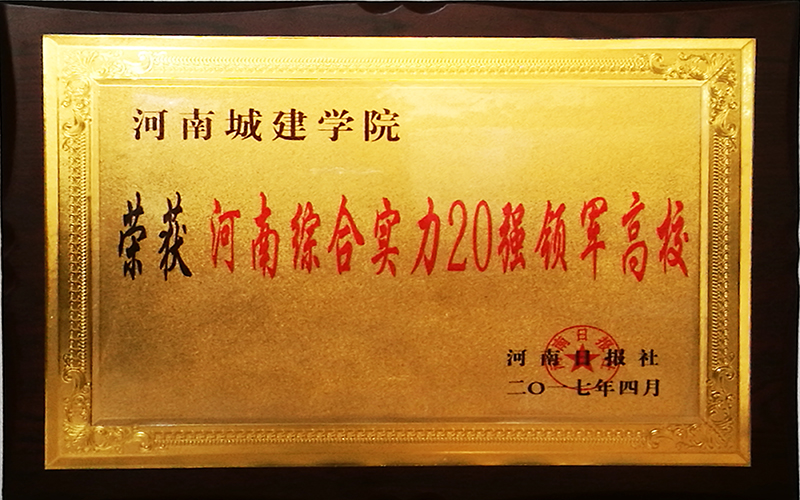 河南城建学院
荣获 河南综合实力20强领军高校
河南日报社
二〇一七年四月